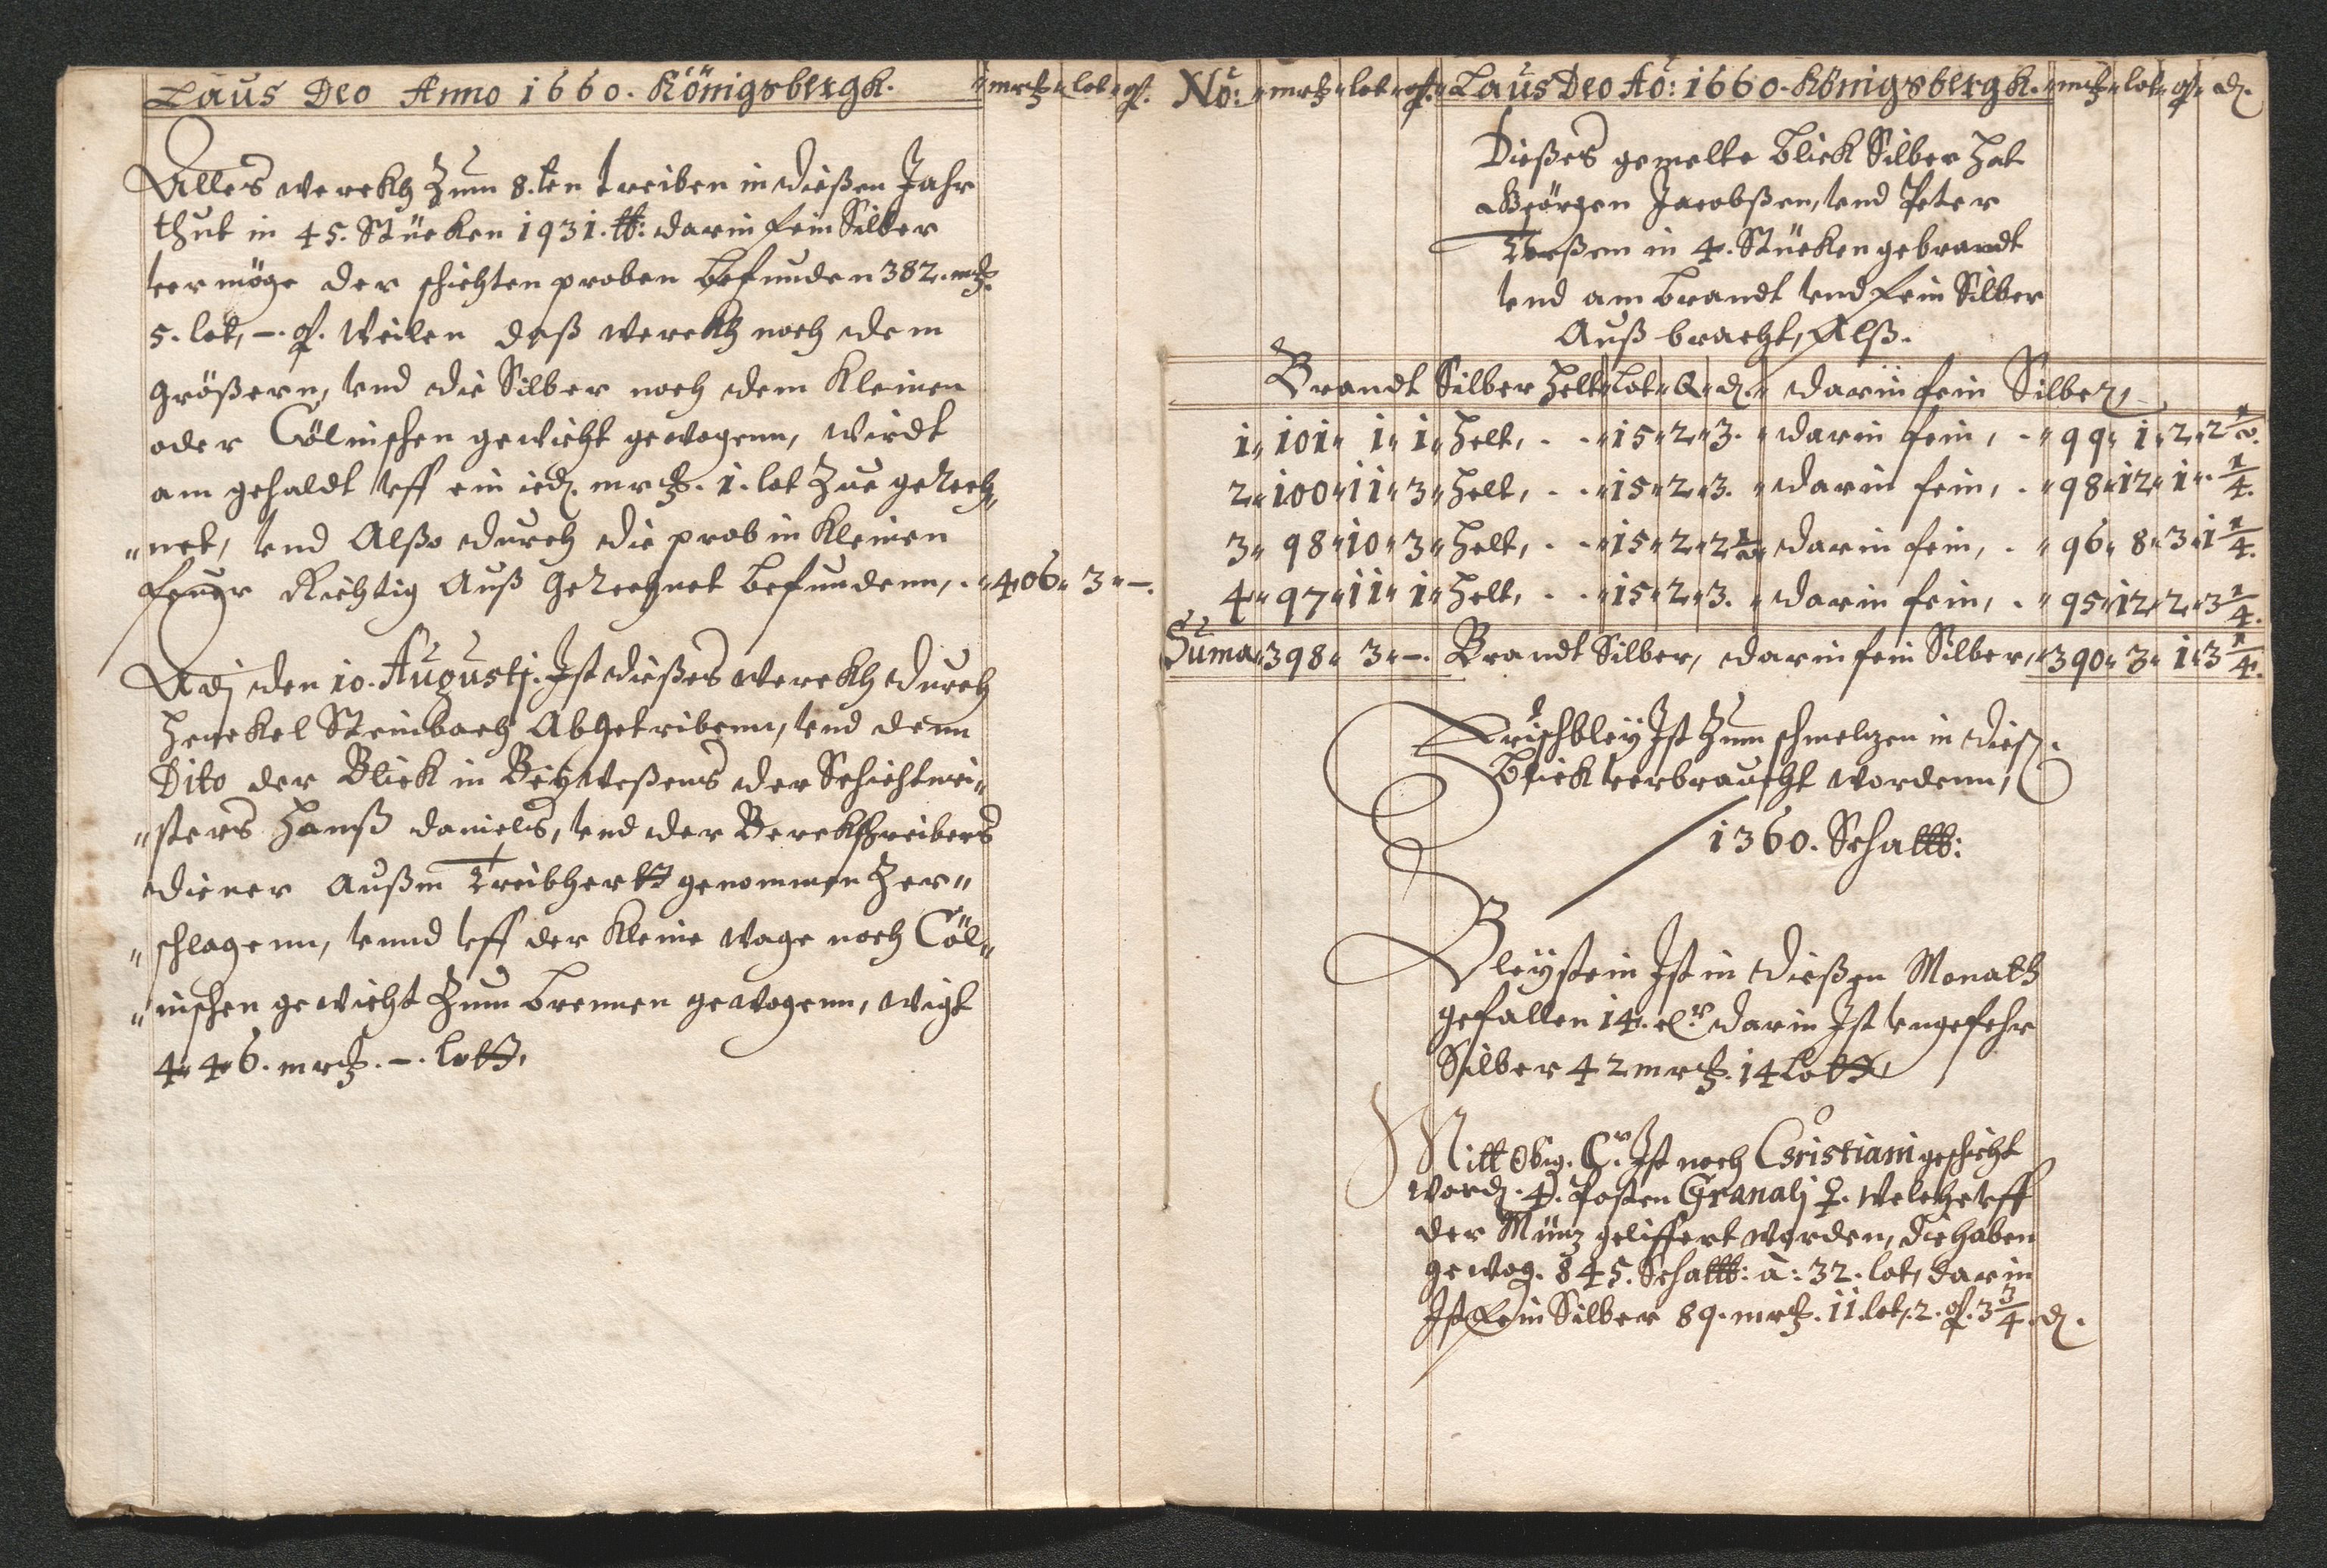 Laus Deo Anno 1660. Königsbergk. mrk lot q.
Alles werckh Zum 8.ten treiben in diessen Jahr
thut in 45. Stücken 1931. ℔: darin fein Silber
vermöge der schichten proben befunden 382. mrk.
5. lot, –. q. Weilen daß werckh noch dem
größern, vnd die Silber noch dem Kleinen
oder Cölnischen gewicht gewogenn, wirdt
am gehaldt vff ein ied. mrk. 1. lot Zue gerech„
„net, vnd Alßo durch die prob in Kleinen
feuer Richtig Auß Gerechnet befundenn, . 406 „ 3 „ –.
Adj den 10. Augustj. Ist dießes werckh durch
Henckel Steinbach Abgetribenn, vnd denn
Dito der Blick in Beyweßens der Schichtmei„
„sters Hanß daniels, vnd der Berckschreibers
diener Außm Treibhertt genommen Zer„
„schlagenn, vnnd vff der Kleine wage noch Cöl„
„nischen gewicht Zum brennen gewogenn, wigt
446. mrk. –. lott,
No: mrk lot q. Laus Deo Ao: 1660. Königsbergk. mrk lot q d.
Dießes gemelte blick Silber hat
Geörgen Jacobßen, vnd Peter
in 4. Stücken gebrandt
vnd am brandt vnd fein Silber
Auß bracht, Alß.
Brandt Silber helt Lot Q d. darin fein Silber,
1 „ 101 „ 1 „ 1 „ helt, . . „ 15 „ 2 „ 3. „ darin fein, . „ 99 „ 1 „ 2 „ 2 1/2.
2 „ 100 „ 11 „ 3 „ helt, . . „ 15 „ 2 „ 3. „ darin fein, . „ 98 „ 12 „ 1 „ . 1/4.
3 „ 98 „ 10 „ 3 „ helt, . . „ 15 „ 2 „ 2 1/2 „ darin fein, . „ 96 „ 8 „ 3 „ 1 1/4.
4 „ 97 „ 11 „ 1 „ helt, . . „ 15 „ 2 „ 3. „ darin fein, . „ 95 „ 12 „ 2 „ 3 1/4.
Suma „ 398 „ 3 „ –. Brandt Silber, darin fein Silber, „ 390 „ 3 „ 1 „ 3 1/4.
Frischbley Ist Zum schmelzen in dieß.
blick verbraucht wordenn,
1360. Schal℔:
Bleystein Ist in dießen Monath
gefallen 14. Cr. darin Ist vngefehr
Silber 42 mrk. 14 Lott,
Mitt Obig. Cr. Ist noch Cristiani geschicht
word. 4. Posten Granalj ♀. welche vff
der Müntz geliffert worden, die haben
gewog. 845. Schal℔: à: 32. lot, darin
Ist fein Silber 89. mrk. 11. lot, 2. q. 3 3/4. d.